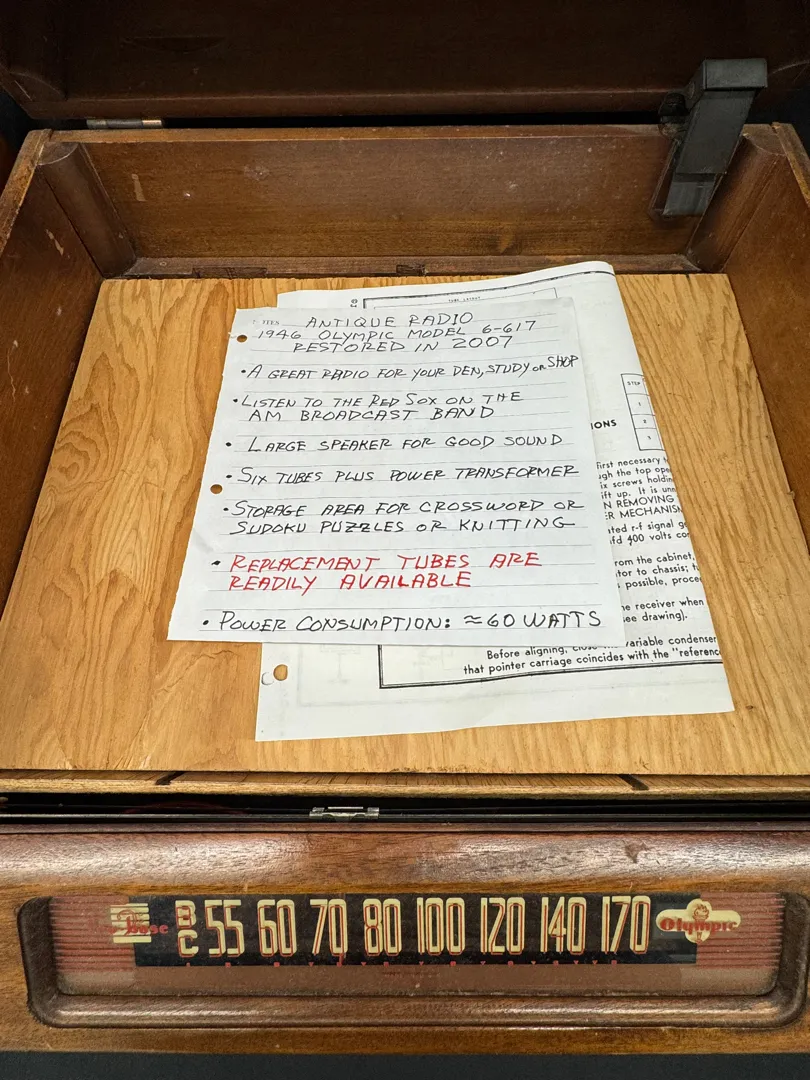 TUBE LAYOUT
NOTES
ANTIQUE RADIO
1946 OLYMPIC MODEL 6-617
RESTORED IN 2007
• A GREAT RADIO FOR YOUR DEN, STUDY OR SHOP
• LISTEN TO THE RED SOX ON THE
AM BROADCAST BAND
• LARGE SPEAKER FOR GOOD SOUND
• SIX TUBES PLUS POWER TRANSFORMER
• STORAGE AREA FOR CROSSWORD OR
SUDOKU PUZZLES OR KNITTING
• REPLACEMENT TUBES ARE
READILY AVAILABLE
• POWER CONSUMPTION: ≈60 WATTS
STEP
1
2
3
IONS
First necessary
ugh the top ope
ix screws holdin
ift up. It is
N REMOVING
ER MECHANISM
ated r-f signal
fd 400 volts
rom the cabinet,
tor to chassis;
possible, proce
he receiver when
see drawing).
Before aligning, variable condenser
that pointer carriage coincides with the "referenc
BC 55 60 70 80 100 120 140 170 Olympic